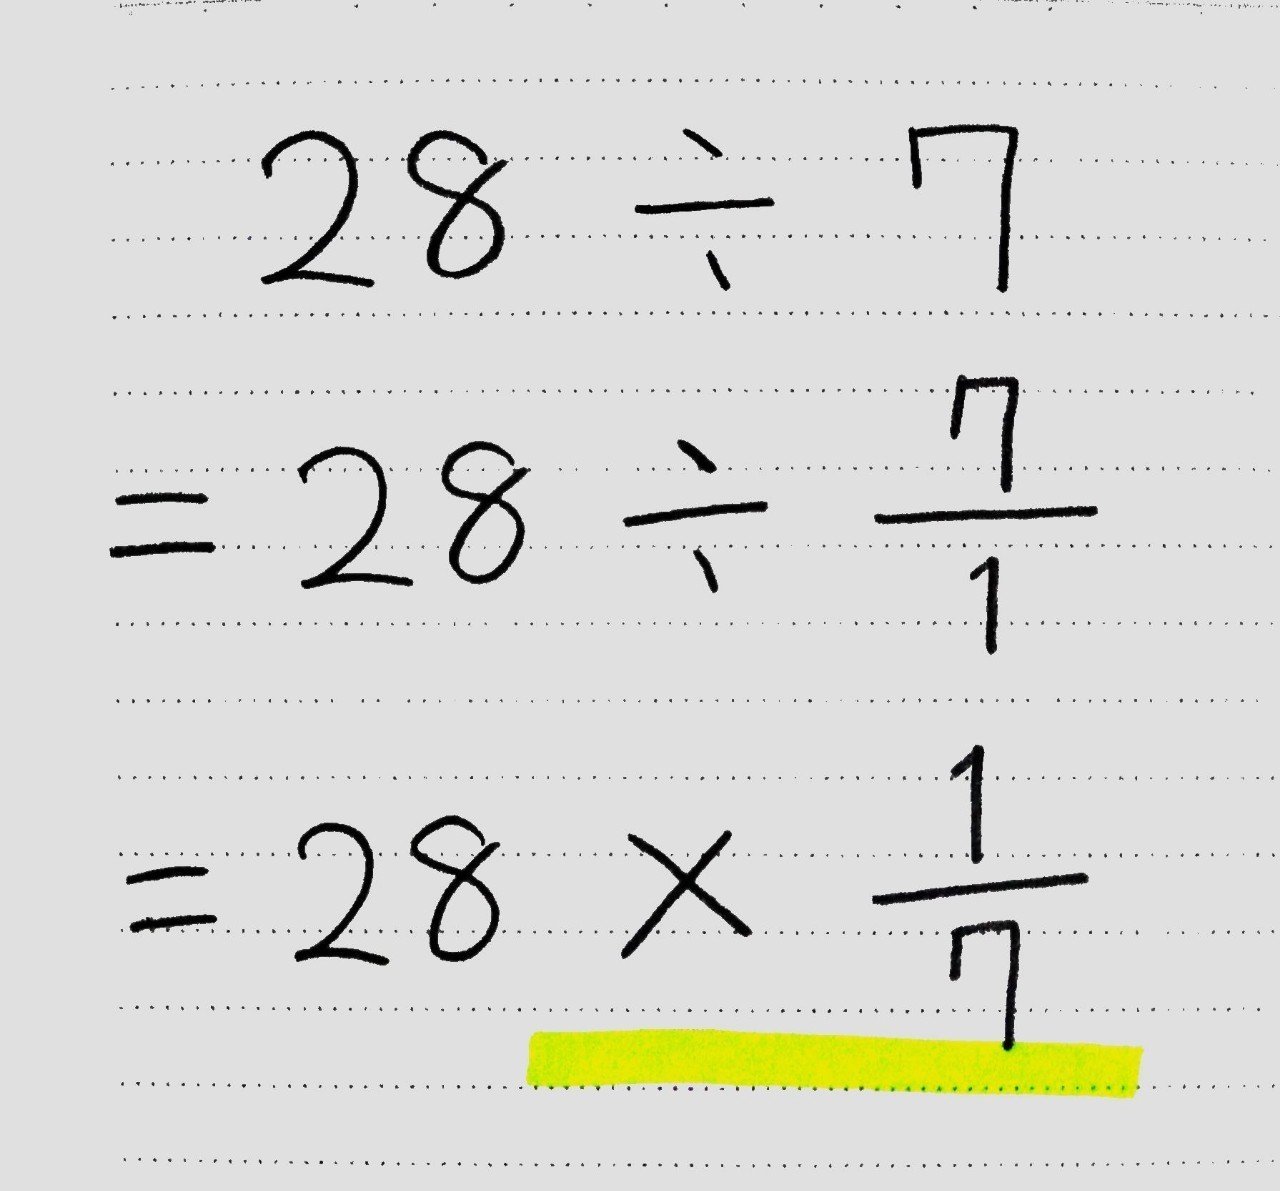 28 ÷ 7
= 28 ÷ 7/1
= 28 × 1/7